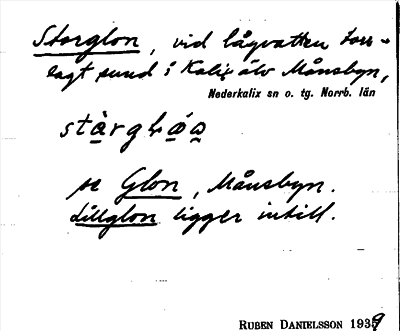 Storglon, vid lågvatten torr-
lagt sund i Kalix älv Månsbyn,
Nederkalix sn o. tg. Norrb. län
se Glon, Månsbyn.
Lillglon ligger intill.
RUBEN DANIELSSON 1939